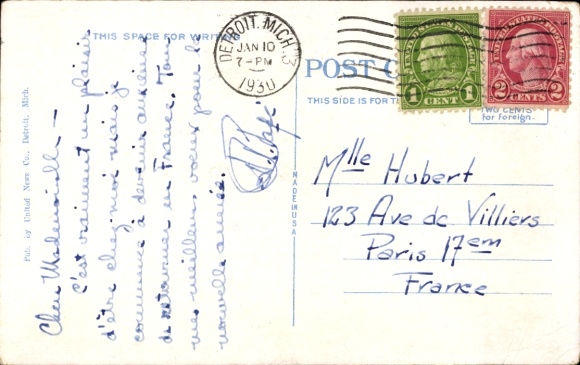 THIS SPACE FOR WRITING
Chère Mademoiselle —
C'est vraiment un plaisir
d'être chez moi mais je
commence à devenir anxieuse
de retourner en France. Tous
mes meilleurs voeux pour la
nouvelle année.
DETROIT, MICH.
JAN 10
7-PM
1930
UNITED STATES POSTAGE
1 CENT 1
UNITED STATES POSTAGE
2 CENTS 2
POST C
THIS SIDE IS FOR T
TWO CENTS
for foreign.
Mlle Hubert
123 Ave de Villiers
Paris 17em
France
MADE IN USA
Pub. by United News Co., Detroit, Mich.